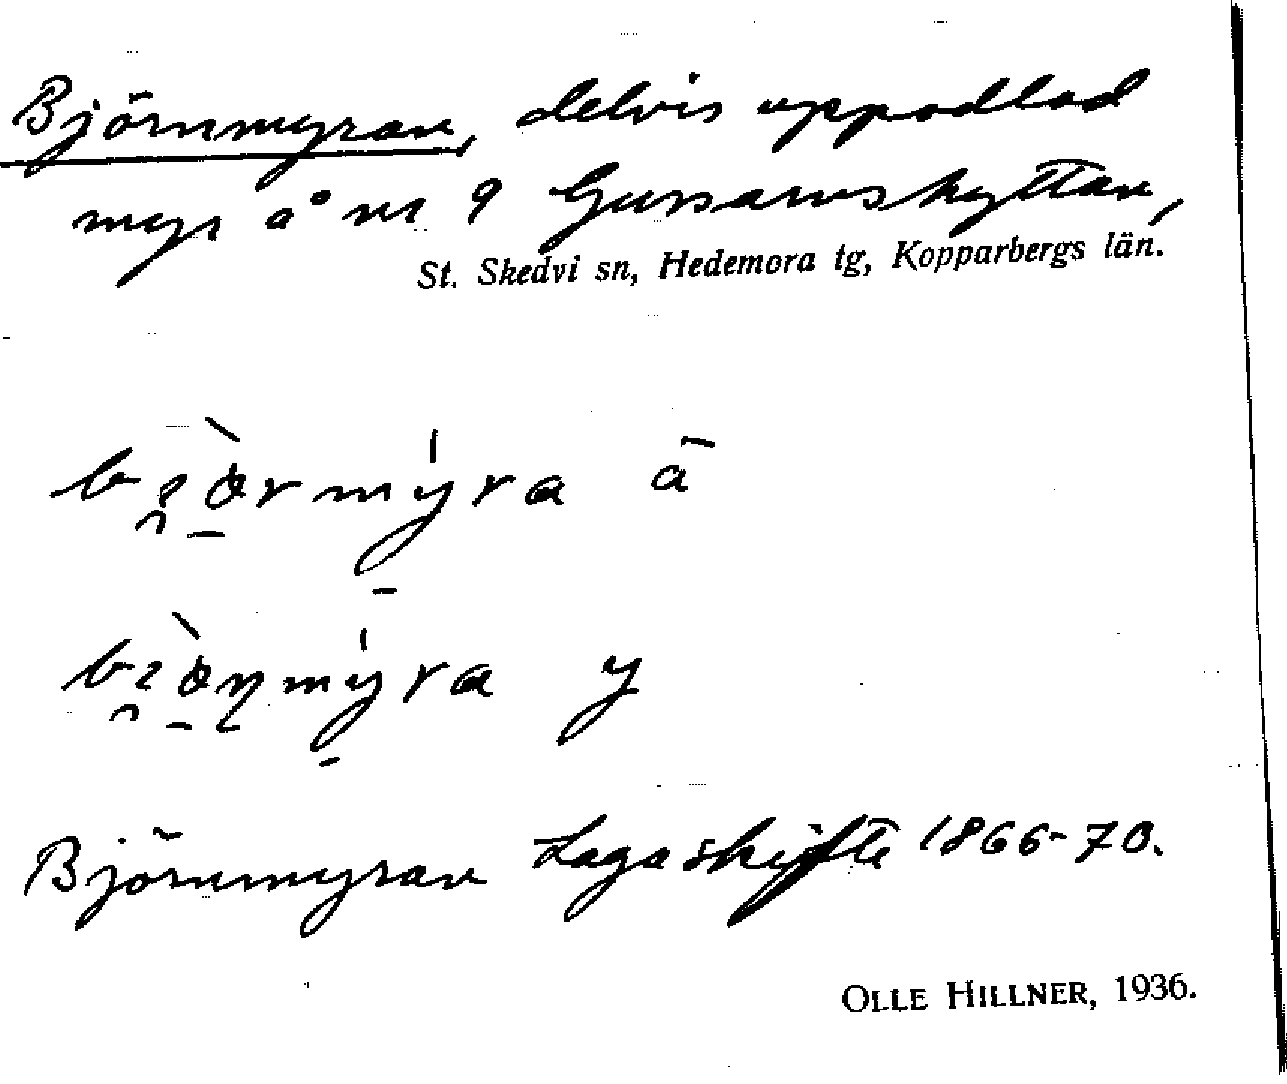 Björnmyran, delvis uppodlad
myr å nr 9 Gussarvshyttan,
St. Skedvi sn, Hedemora tg, Kopparbergs län.
ā
y
Björnmyran Laga skifte 1866-70.
OLLE HILLNER, 1936.